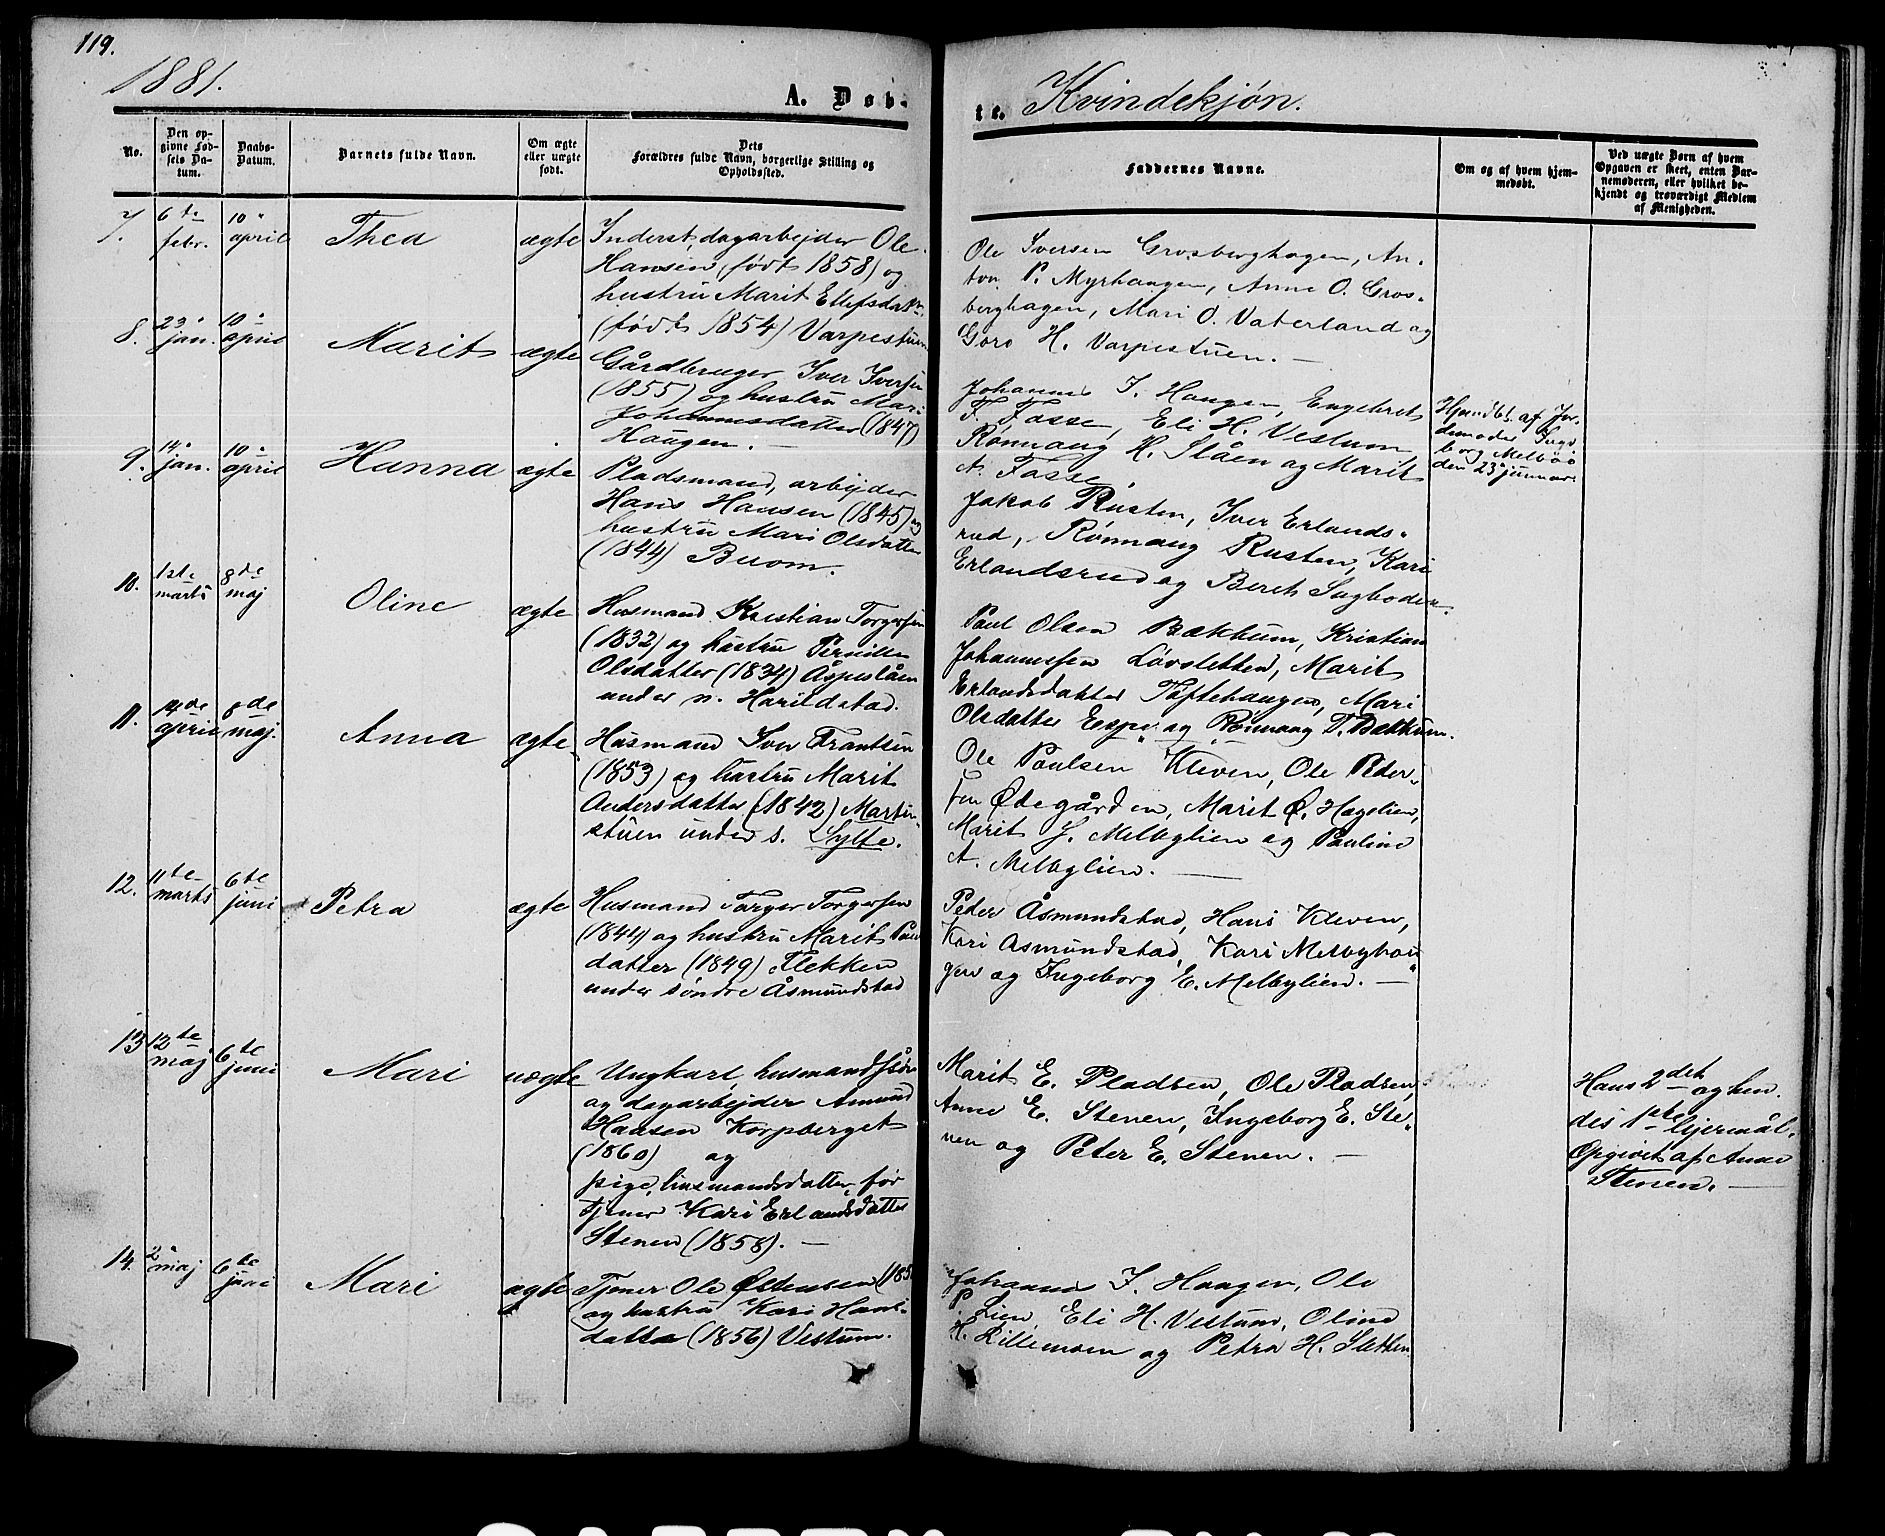 119.
1881.
A. Døb-
te. Kvindekjøn.
No.
Den op-
givne Fød-
sels Da-
tum.
Daabs-
Datum.
Barnets fulde Navn.
Om ægte
eller uægte
født.
Dets
Forældres fulde Navn, borgerlige Stilling og
Opholdssted.
Faddernes Navne.
Om og af hvem hjem-
medøbt.
Ved uægte Børn af hvem
Opgaven er skeet, enten Bar-
nemoderen, eller hvilket be-
kjendt og troværdigt Medlem
af Menigheden.
7.
6te
febr.
10.
april
Thea
ægte
Inderst, dagarbejder Ole
Hansen (født 1858) og
hustru Marit Ellefsdatr.
(født 1854) Varpestuen
Ole Iversen Grosberghagen, An-
ton P. Myrhaugen, Anne O. Gros-
berghagen, Mari O. Vaterland og
Goro H. Varpestuen. —
8.
23.
jan.
10.
april
Marit
ægte
Gårdbruger Iver Iversen
(1855) og hustru Mari
Johannesdatter (1847)
Haugen. —
Johannes I. Haugen, Engebret
T. Fosse, Eli H. Vestum,
Rønnaug H. Slåen og Marit
A. Fosse.
Hjemdbt. af Jor-
demoder Inge-
borg Melbøe
den 23. januar.
9.
14.
jan.
10.
april
Hanna
ægte
Pladsmand, arbejder
Hans Hansen (1845) og
hustru Mari Olsdatter
(1844) Buom.
Jakob Rusten, Iver Erlands-
rud, Rønnaug Rusten, Kari
Erlandsrud og Berit Sagboden.
10.
1ste
marts
8de
maj
Oline
ægte
Husmand Kristian Torgersen
(1832) og hustru Pernille
Olsdatter (1834) Åspeslåen
under n. Harildstad.
Paul Olsen Bækkum, Kristian
Johannessen Løvsletten, Marit
Erlandsdatter Toftehaugen, Mari
Olsdatter Espe og Rønnaug T. Bækkum.
11.
14de
april
8de
maj.
Anna
ægte
Husmand Iver Frantsen
(1853) og hustru Marit
Andersdatter (1842) Marten-
stuen under s. Sylte.
Ole Paulsen Kleven, Ole Peder-
sen Ødegården, Marit Ø. Hagelien,
Marit J. Melbylien og Pauline
A. Melbylien. —
12.
11te
marts
6te
juni
Petra
ægte
Husmand Torger Torgersen
(1844) og hustru Marit Pauls
datter (1849) Flekken
under søndre Åsmundstad
Peder Åsmundstad, Hans Kleven,
Kari Åsmundstad, Kari Melbyhau-
gen og Ingeborg E. Melbylien. —
13
12te
maj
6te
juni
Mari
uægte
Ungkarl, husmandssøn
og dagarbejder Amund
Hansen Korpberget
(1860) og
pige, husmandsdatter, for
tjener Kari Erlandsdatter
Stenen (1858). —
Marit E. Pladsen, Ole Pladsen,
Anne E. Stenen, Ingeborg E. Ste-
nen og Peter E. Stenen. —
Hans 2det og hen.
des 1ste lejermål.
Opgivet af Anne
Stenen. —
14.
2.
maj
6te
juni
Mari
ægte
Tjener Ole Østensen
og hustru Kari Hans-
datter (1856) Vestum.
Johannes I. Haugen, Ole
P. Lien, Eli H. Vestum, Oline
H. Lillemoen og Petra H. Sletten